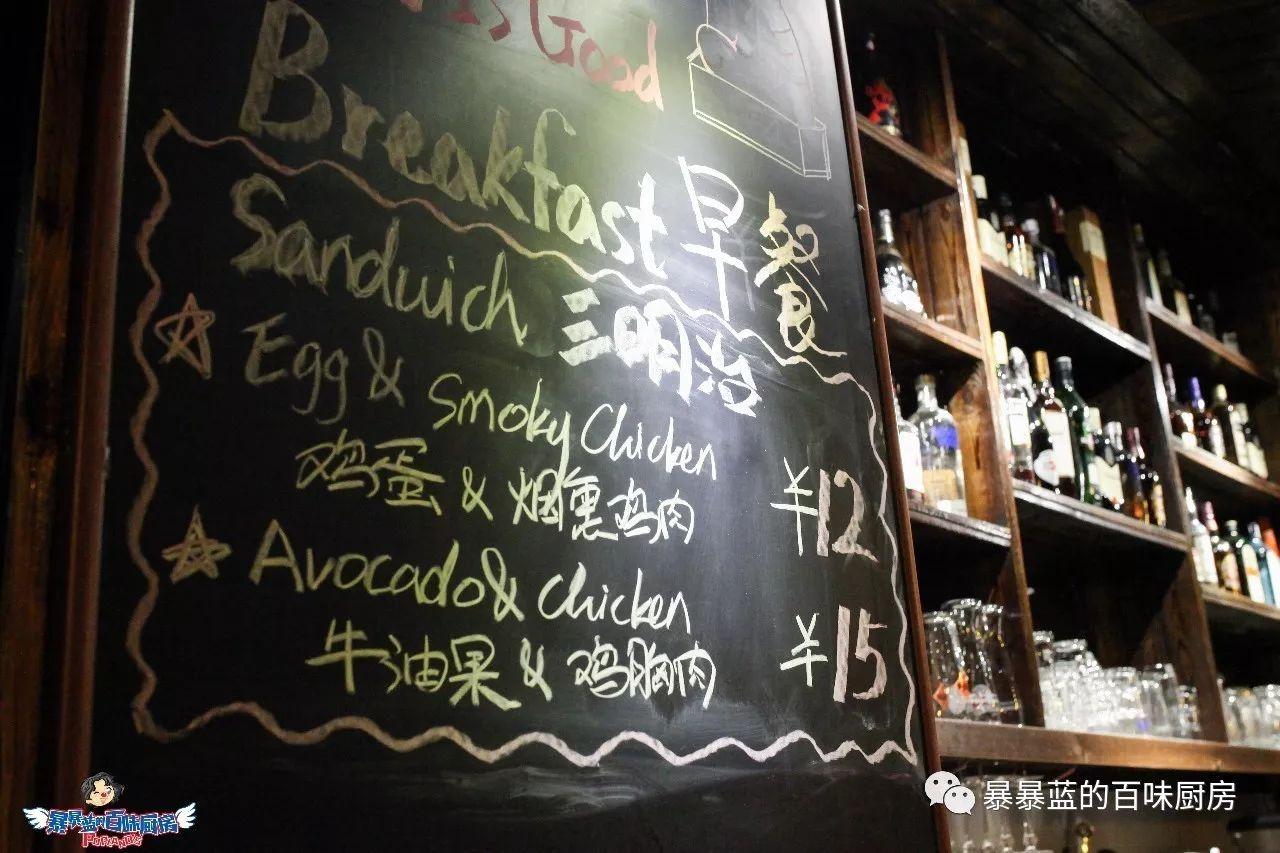 Is Good
Breakfast 早餐
Sandwich 三明治
Egg & Smoky Chicken
鸡蛋 & 烟熏鸡肉 ¥12
Avocado & Chicken
牛油果 & 鸡胸肉 ¥15
暴暴蓝的百味厨房
暴暴蓝的百味厨房